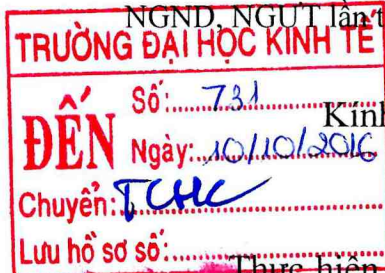 NGND, NGƯT lần t
TRƯỜNG ĐẠI HỌC KINH TẾ
ĐẾN
Số: 731
Kính
Ngày: 10/10/2016
Chuyển: TCHC
Lưu hồ sơ số:
Thực hiện